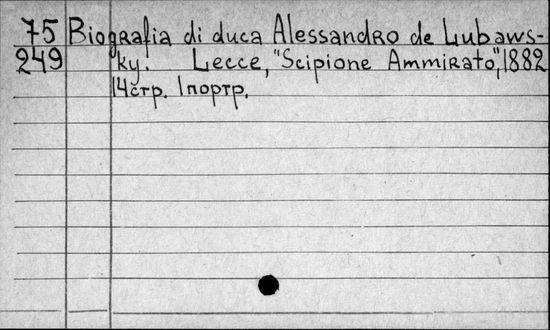 75 Biografia di duca Alessandro de Lubaws-
249 ky. Lecce, "Scipione Ammirato", 1882
14стр. 1портр.